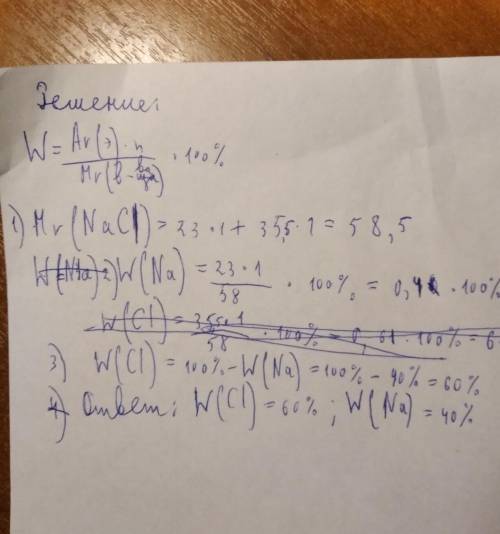 Решение:
W = Ar(э)·n / Mr(в-ва) · 100%
1) Mr(NaCl) = 23·1 + 35,5·1 = 58,5
2) W(Na) = 23·1 / 58 · 100% = 0,4 · 100%
W(Cl) = 35,5·1 / 58 · 100% = 0,61 · 100% = 6
3) W(Cl) = 100% - W(Na) = 100% - 40% = 60%
4) Ответ: W(Cl) = 60% ; W(Na) = 40%